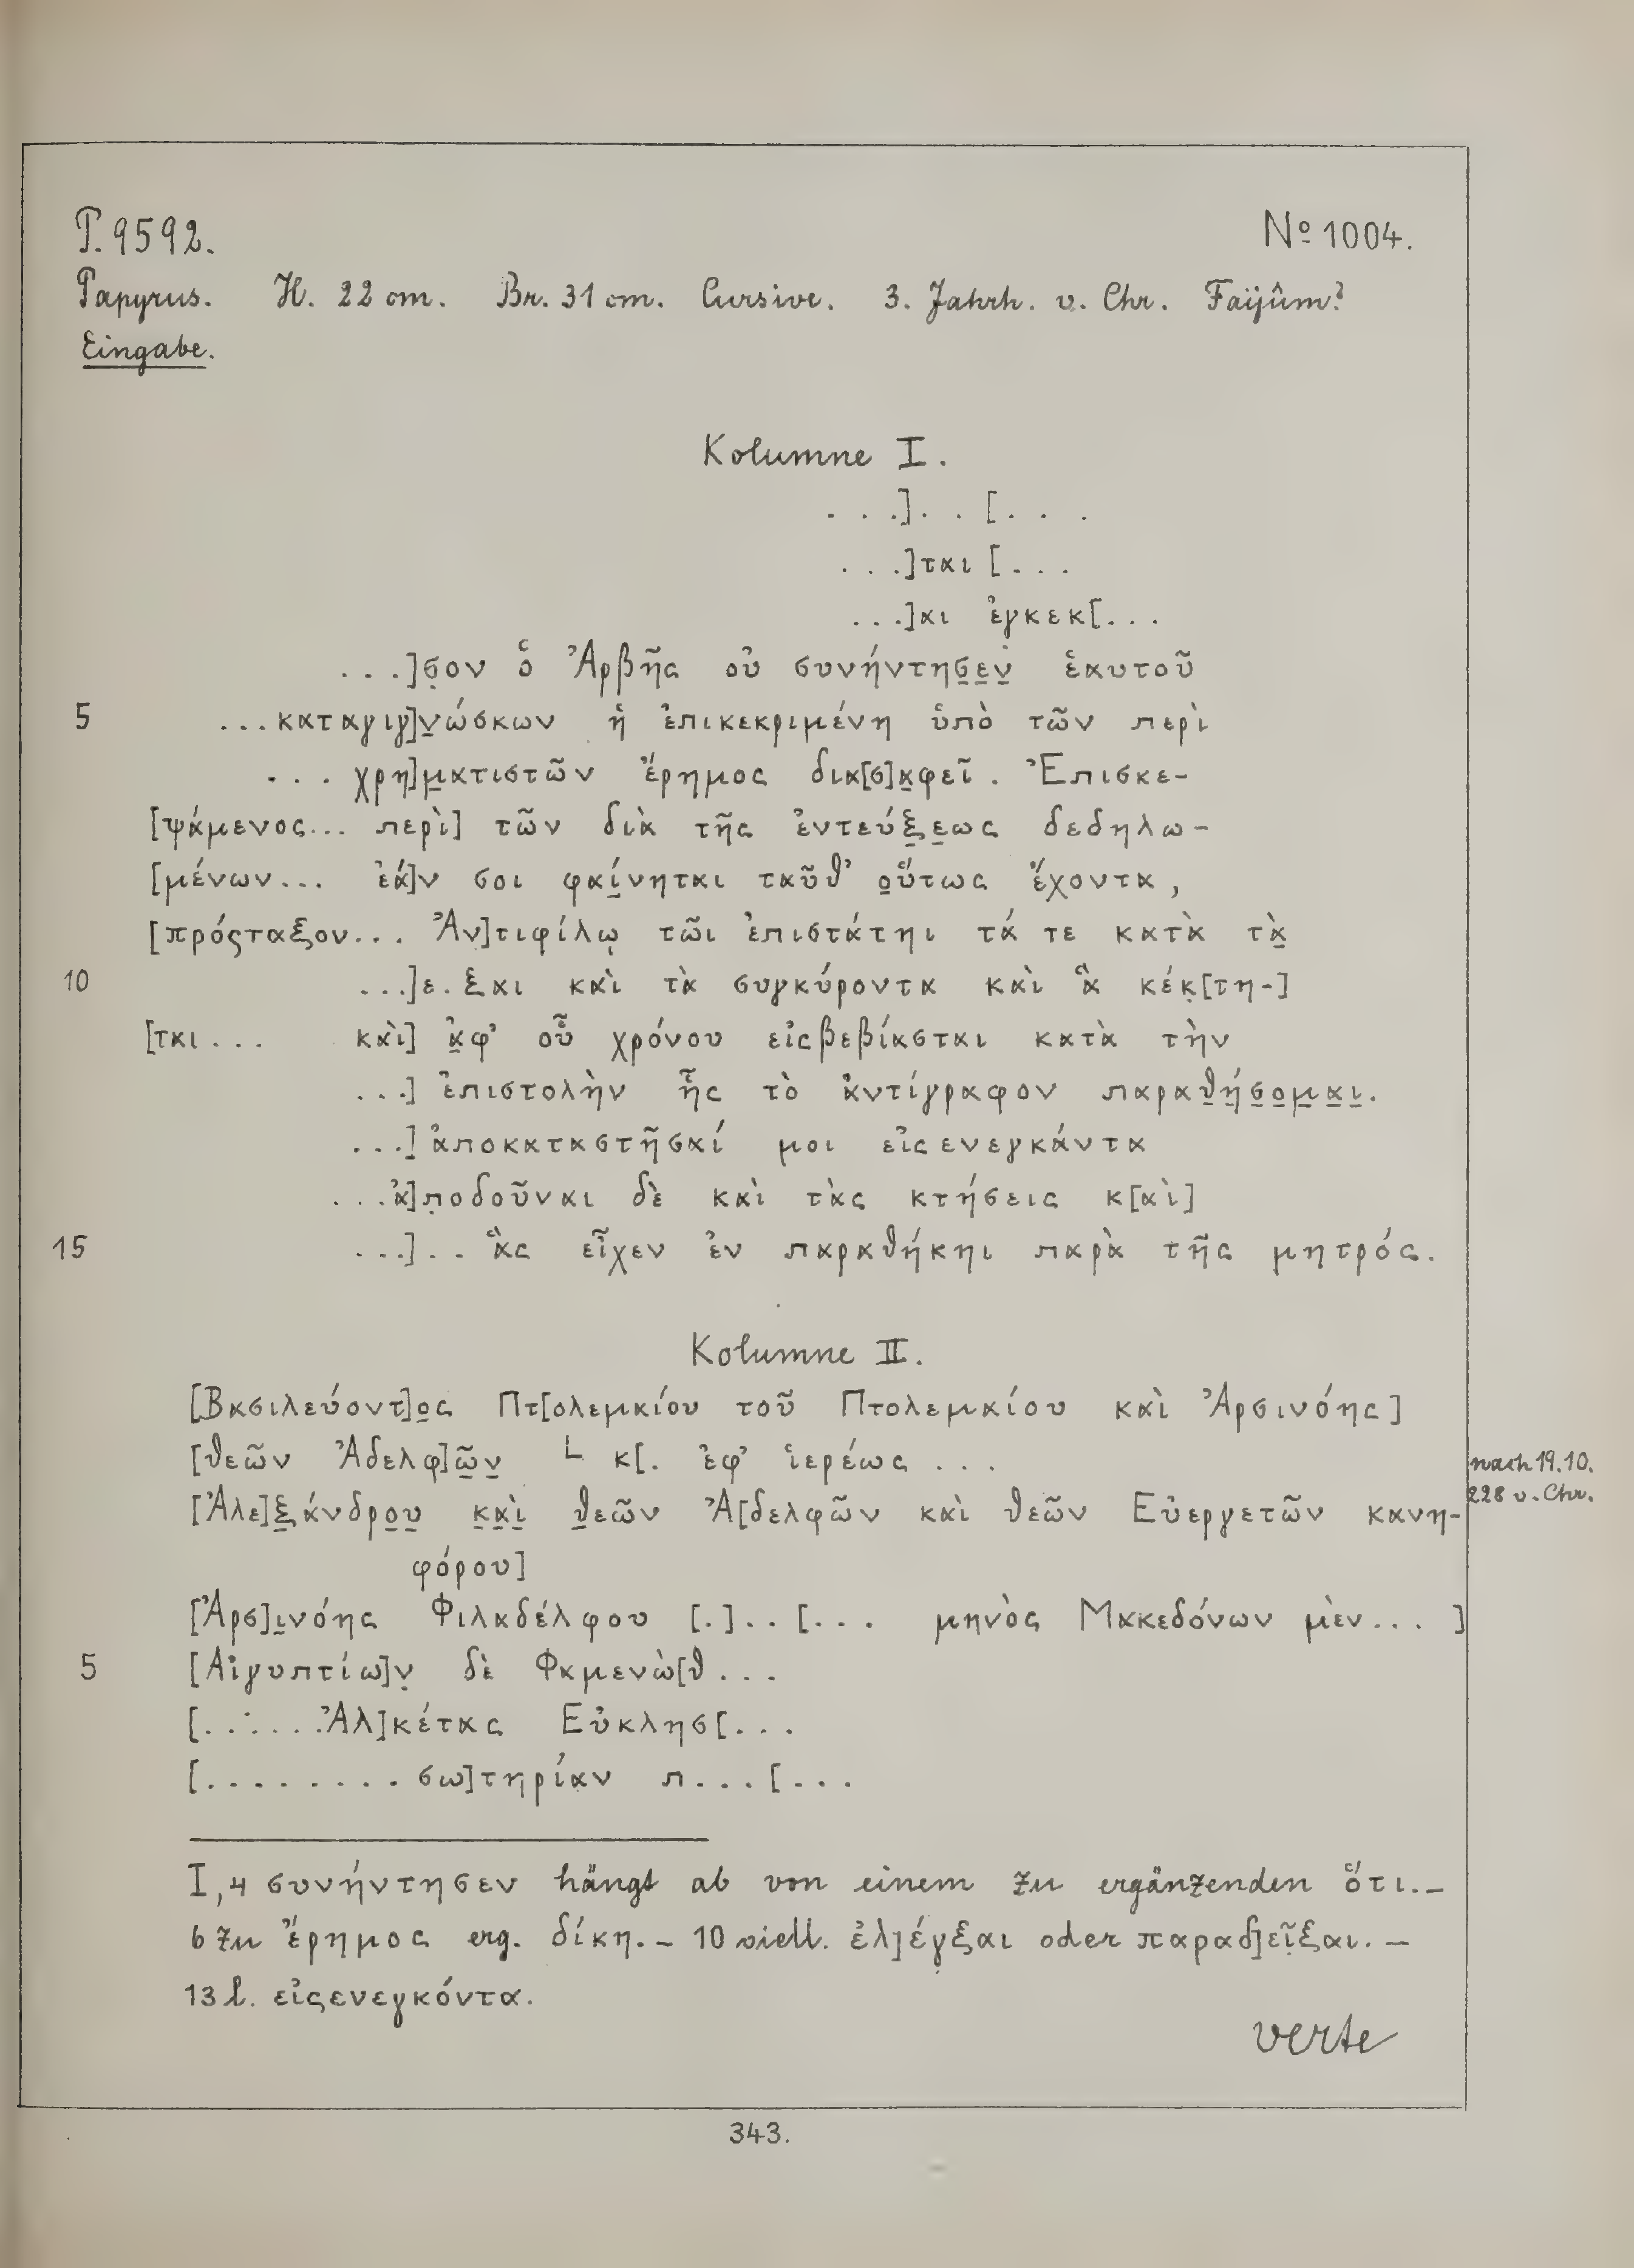 P. 9592. № 1004.
Papyrus. H. 22 cm. Br. 31 cm. Cursive. 3. Jahrh. v. Chr. Faijûm?
Eingabe.
Kolumne I.
. . .]. . [. . .
. . .]ται [. . .
. . .]αι ἐγκεκ[. . .
. . .]σ̣ον ὁ Ἁρβῆς οὐ συνήντησ̣ε̣ν̣ ἑαυτοῦ
5 ...καταγιγ]ν̣ώσκων ἡ ἐπικεκριμένη ὑπὸ τῶν περὶ
. . . χρη]μ̣ατιστῶν ἔρημος δια[σ]α̣φεῖ. Ἐπισκε-
[ψάμενος... περὶ] τῶν διὰ τῆς ἐντεύξ̣ε̣ως δεδηλω-
[μένων... ἐά]ν σοι φαί̣νηται ταῦθ' ο̣ὕτως ἔχοντα,
[πρόςταξον... Ἀν]τιφίλῳ τῶι ἐπιστάτηι τά τε κατὰ τὰ̣
10 ...]ε.ξαι καὶ τὰ συγκύροντα καὶ ἃ κέκ̣[τη-]
[ται ... καὶ] ἀ̣φ' οὗ χρόνου εἰςβεβίασται κατὰ τὴν
...] ἐπιστολὴν ἧς τὸ ἀντίγραφον παραθ̣ή̣σ̣ο̣μ̣α̣ι̣.
...] ἀποκαταστῆσαί μοι εἰςενεγκάντα
. . .ἀ]π̣οδοῦναι δὲ καὶ τὰς κτήσεις κ[αὶ]
15 ...].. ἃς εἶχεν ἐν παραθήκηι παρὰ τῆς μητρός.
Kolumne II.
[Βασιλεύοντ]ο̣ς Πτ[ολεμαίου τοῦ Πτολεμαίου καὶ Ἀρσινόης]
[θεῶν Ἀδελφ]ῶ̣ν̣ └ κ[. ἐφ' ἱερέως ...
nach 19.10.
228 v. Chr.
[Ἀλε]ξ̣άνδρο̣υ̣ κ̣α̣ὶ̣ θ̣εῶν Ἀ[δελφῶν καὶ θεῶν Εὐεργετῶν κανη-
φόρου]
[Ἀρσ]ι̣νόης Φιλαδέλφου [.]..[... μηνὸς Μακεδόνων μὲν... ]
5 [Αἰγυπτίω]ν̣ δὲ Φαμενὼ[θ ...
[.......Ἀλ]κέτας Εὐκλησ[...
[........ σω]τηρίαν π...[...
I,4 συνήντησεν hängt ab von einem zu ergänzenden ὅτι.–
6 zu ἔρημος erg. δίκη. – 10 viell. ἐλ]έγ̣ξαι oder παραδ]εῖ̣ξαι. –
13 l. εἰςενεγκόντα.
verte
343.